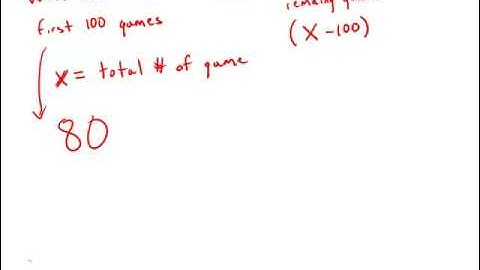 first 100 games
(x - 100)
x = total # of game
80